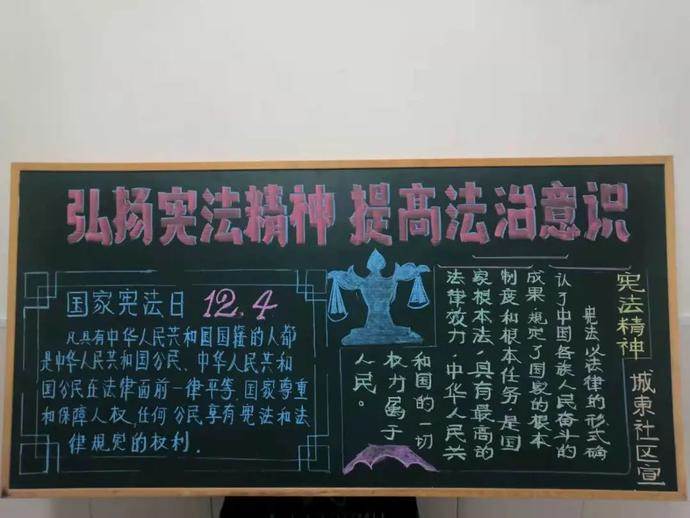 弘扬宪法精神 提高法治意识
国家宪法日 12.4
凡具有中华人民共和国国籍的人都
是中华人民共和国公民、中华人民共和
国公民在法律面前一律平等、国家尊重
和保障人权,任何公民享有宪法和法
律规定的权利.
宪法精神
宪法以法律的形式确
认了中国各族人民奋斗的
成果,规定了国家的根本
制度和根本任务,是国
家根本法,具有最高的
法律效力,中华人民共
和国的一切
权力属于
人民。
城東社区宣